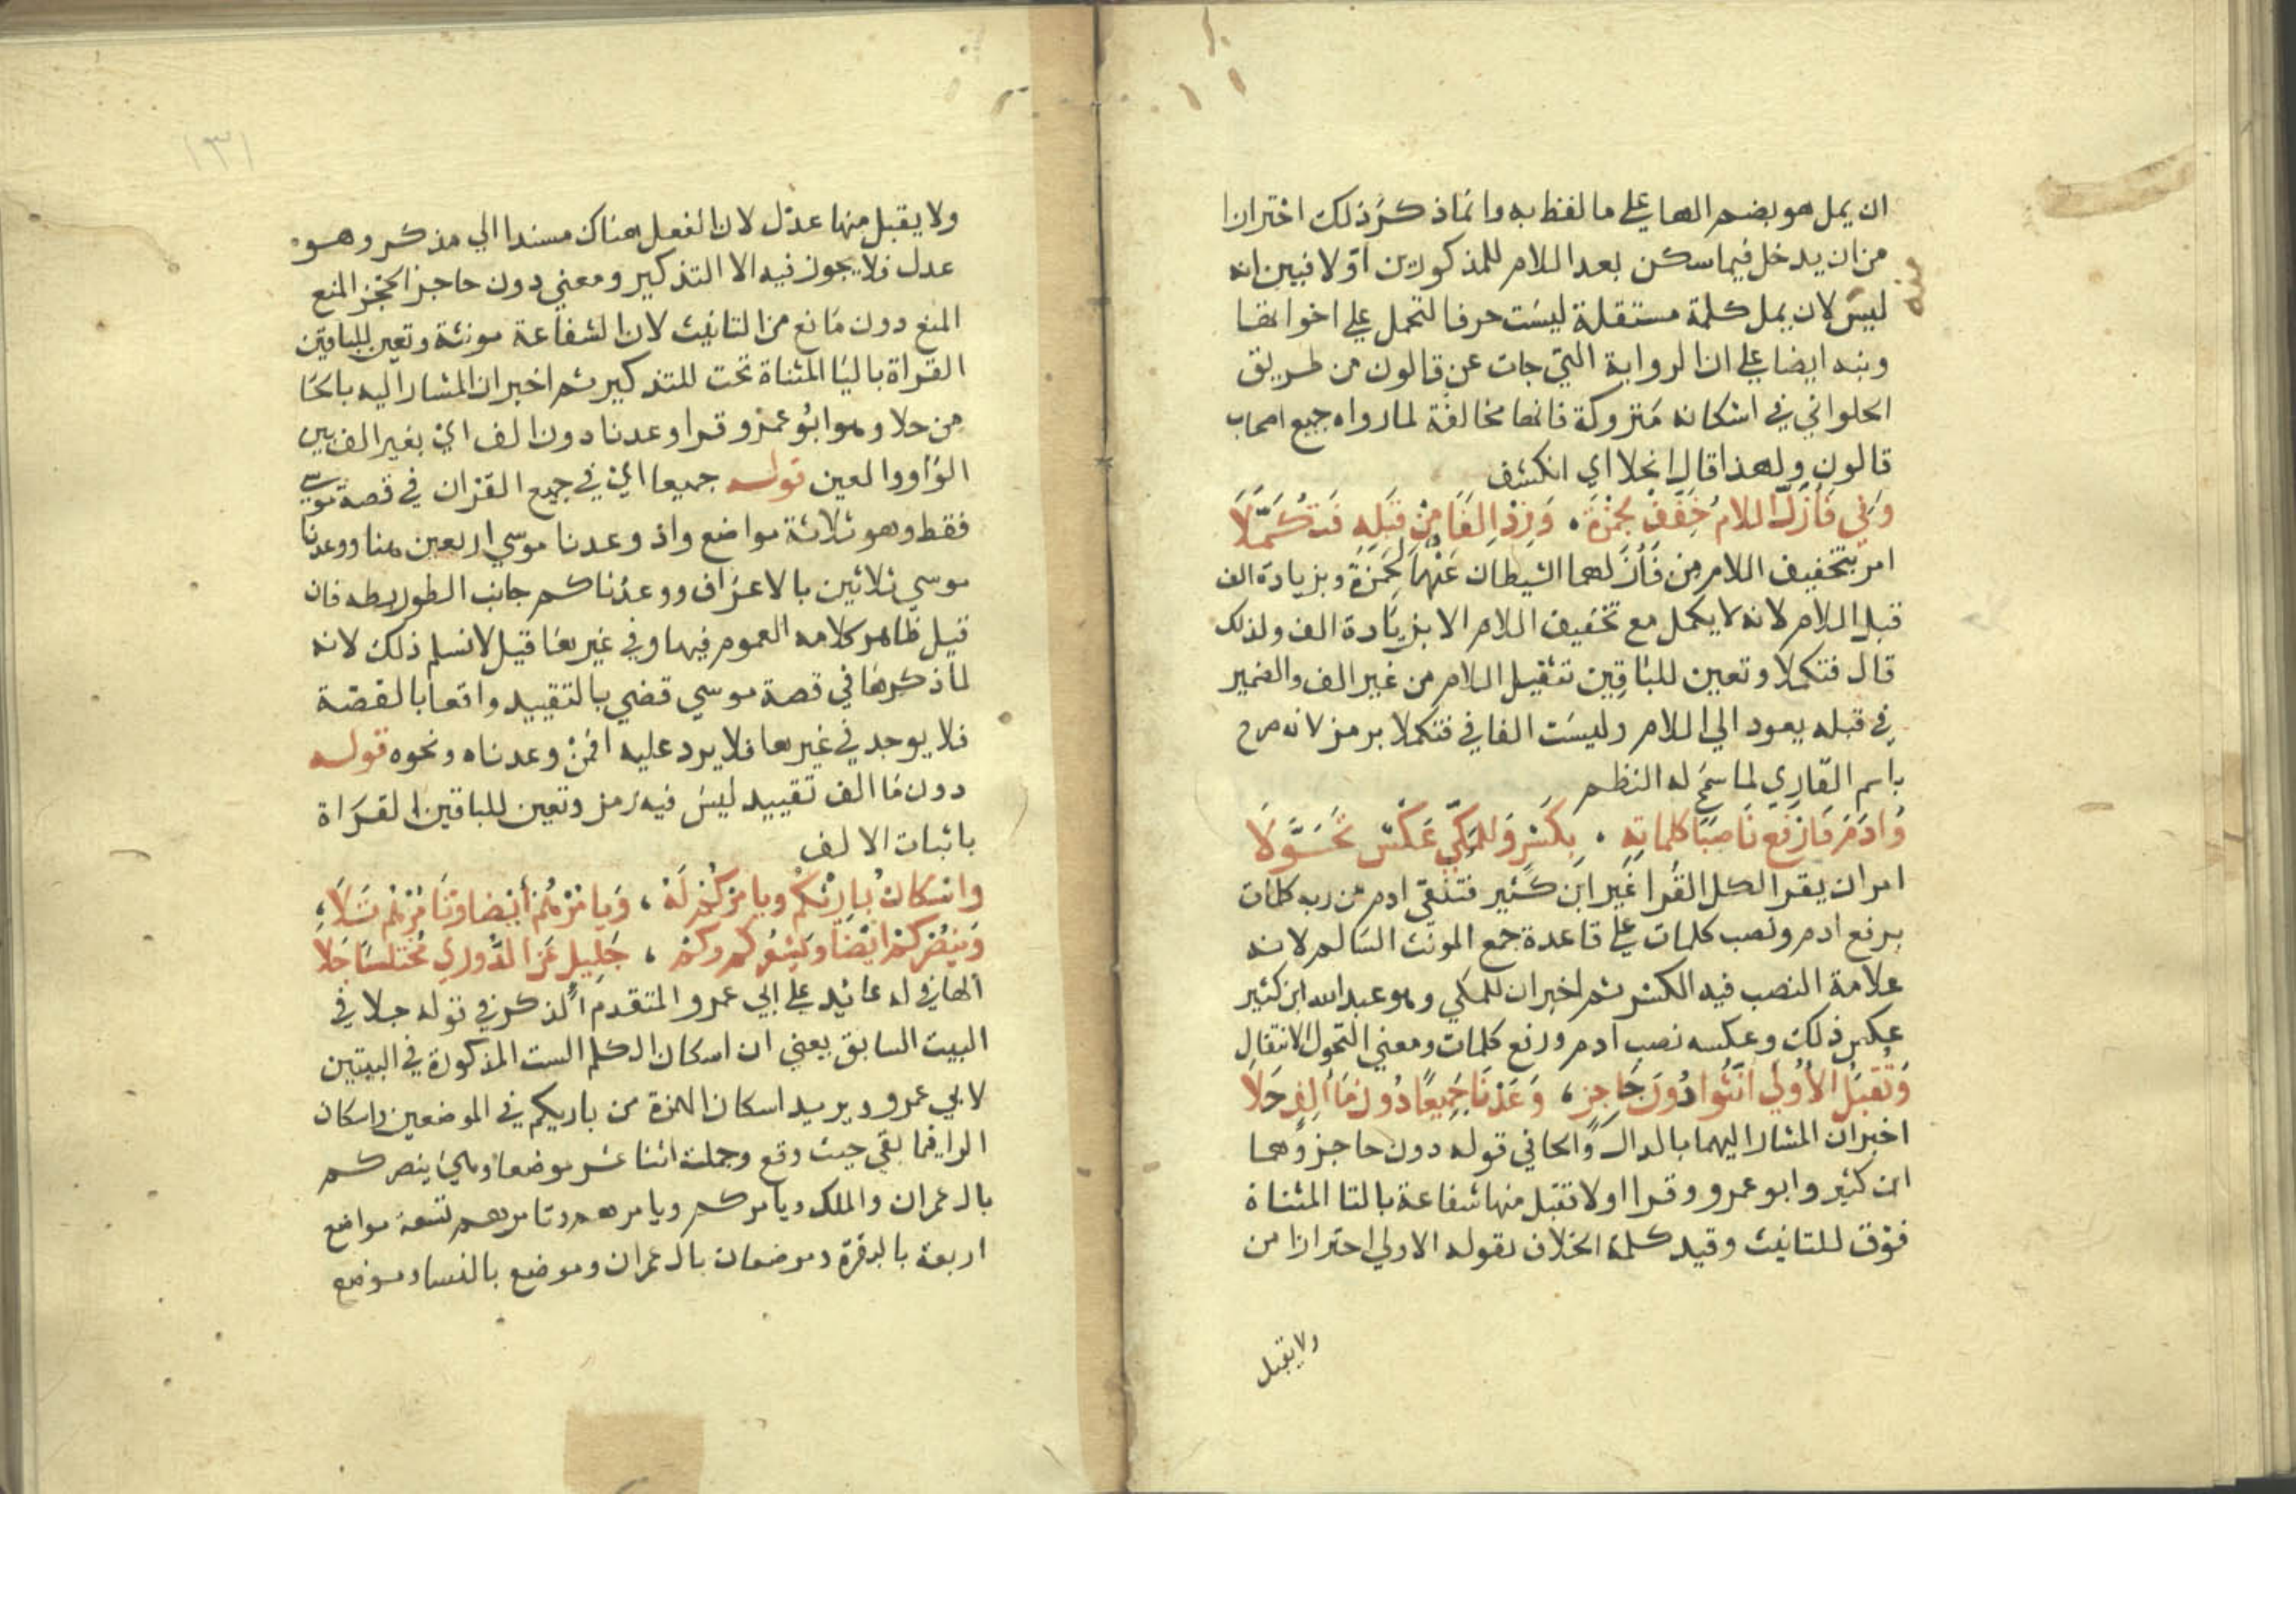 ان يمل هو بضم الها علي ما لفظ به وانما ذكر ذلك احترازا
من ان يدخل فيما سكن بعد اللام للمذكورين اولا فبين انه
ليس لان يمل كلمة مستقلة ليست حرفا لتحمل علي اخواتها
ونبه ايضا علي ان الرواية التي جات عن قالون من طريق
الحلواني في اسكانه متروكة فانها مخالفة لما رواه جميع اصحاب
قالون ولهذا قال انجلا اي انكشف
وَفي فَأَزَلَّ اللامُ خَفِّفْ لحَمْزَةَ . وَزِدْ اَلِفًا مِنْ قَبْلِهِ فَتُكَمِّلَا
امر بتخفيف اللام من فَأَزَلهما الشيطان عَنْهَا لحمزة وبزيادة الف
قبل اللام لانه لا يكمل مع تخفيف اللام الا بزيادة الف ولذلك
قال فتكملا وتعين للباقين تثقيل اللام من غير الف والضمير
في قبله يعود الي اللام وليست الفا في فتكملا برمز لانه صرح
باسم القاري لما سمح له النظم
وَادَمَ فَارْفَعْ نَاصِبًا كلماتِهِ . بِكَسْرٍ وَللمَكِّيِّ عَكْسٌ تَحَوَّلَا
امر ان يقرا لكل القرا غير ابن كثير فتلقي ادم من ربه كلمات
برفع ادم ونصب كلمات علي قاعدة جمع المونث السالم لانه
علامة النصب فيه الكسر ثم اخبر ان للمكي وهو عبد الله ابن كثير
عكس ذلك وعكسه نصب ادم ورفع كلمات ومعني التحول الانتقال
وَتُقْبَلُ الأُولَي انَّثُوا دُونَ حَاجِزٍ ، وَعَدْنَا جَمِيعًا دُونَ مَا اَلِفٍ حَلَا
اخبر ان المشار اليهما بالدال والحا في قوله دون حاجز وهما
ابن كثير وابو عمرو وقراا ولا تقبل منها شفاعة بالتا المثناة
فوق للتانيث وقيد كلمة الخلاف بقوله الاولي احترازا من
ولا يقبل
ولا يقبل منها عدل لان الفعل هناك مسندا الي مذكر وهو
عدل فلا يجوز فيه الا التذكير ومعني دون حاجز الحجز المنع
المنع دون مانع من التانيث لان الشفاعة مونثة وتعين للباقين
القراة باليا المثناة تحت للتذكير ثم اخبر ان المشار اليه بالحا
من حلا وهو ابو عمرو قرا وعدنا دون الف اي بغير الف بين
الواو والعين قوله جميعا اي في جميع القران في قصة موسي
فقط وهو ثلاثة مواضع واذ وعدنا موسي اربعين هنا ووعدنا
موسي ثلاثين بالاعراف ووعدناكم جانب الطور بطه فان
قيل ظاهر كلامه العموم فيها وفي غيرها قيل لا نسلم ذلك لانه
لما ذكرها في قصة موسي قضي بالتقييد واقعا بالقصة
فلا يوجد في غيرها فلا يرد عليه افمن وعدناه ونحوه قوله
دون ما الف تقييد ليس فيه رمز وتعين للباقين القراة
باثبات الالف
واسْكَانُ بَارِئْكُمْ ويامُرْكُمْ لَهُ ، وَيامُرْهُمْ أيْضا وتَامُرْهُمْ تَلَا ،
وَيَنْصُرْكُمْ ايْضًا ويُشْعِرْكُم وكمْ ، جَلِيلٍ عَنِ الدُّورِي مُخْتَلِسًا جَلَا
الها في له عائد علي ابي عمرو المتقدم الذكر في قوله حلا في
البيت السابق يعني ان اسكان الكلم الست المذكورة في البيتين
لابي عمرو ويريد اسكان الهمزة من باريكم في الموضعين واسكان
الرا فيما بقي حيث وقع وجملته اثنا عشر موضعا وهي ينصركم
بال عمران والملك ويامركم ويامرهم وتامرهم تسعة مواضع
اربعة بالبقرة وموضعان بال عمران وموضع بالنسا وموضع
١٣١